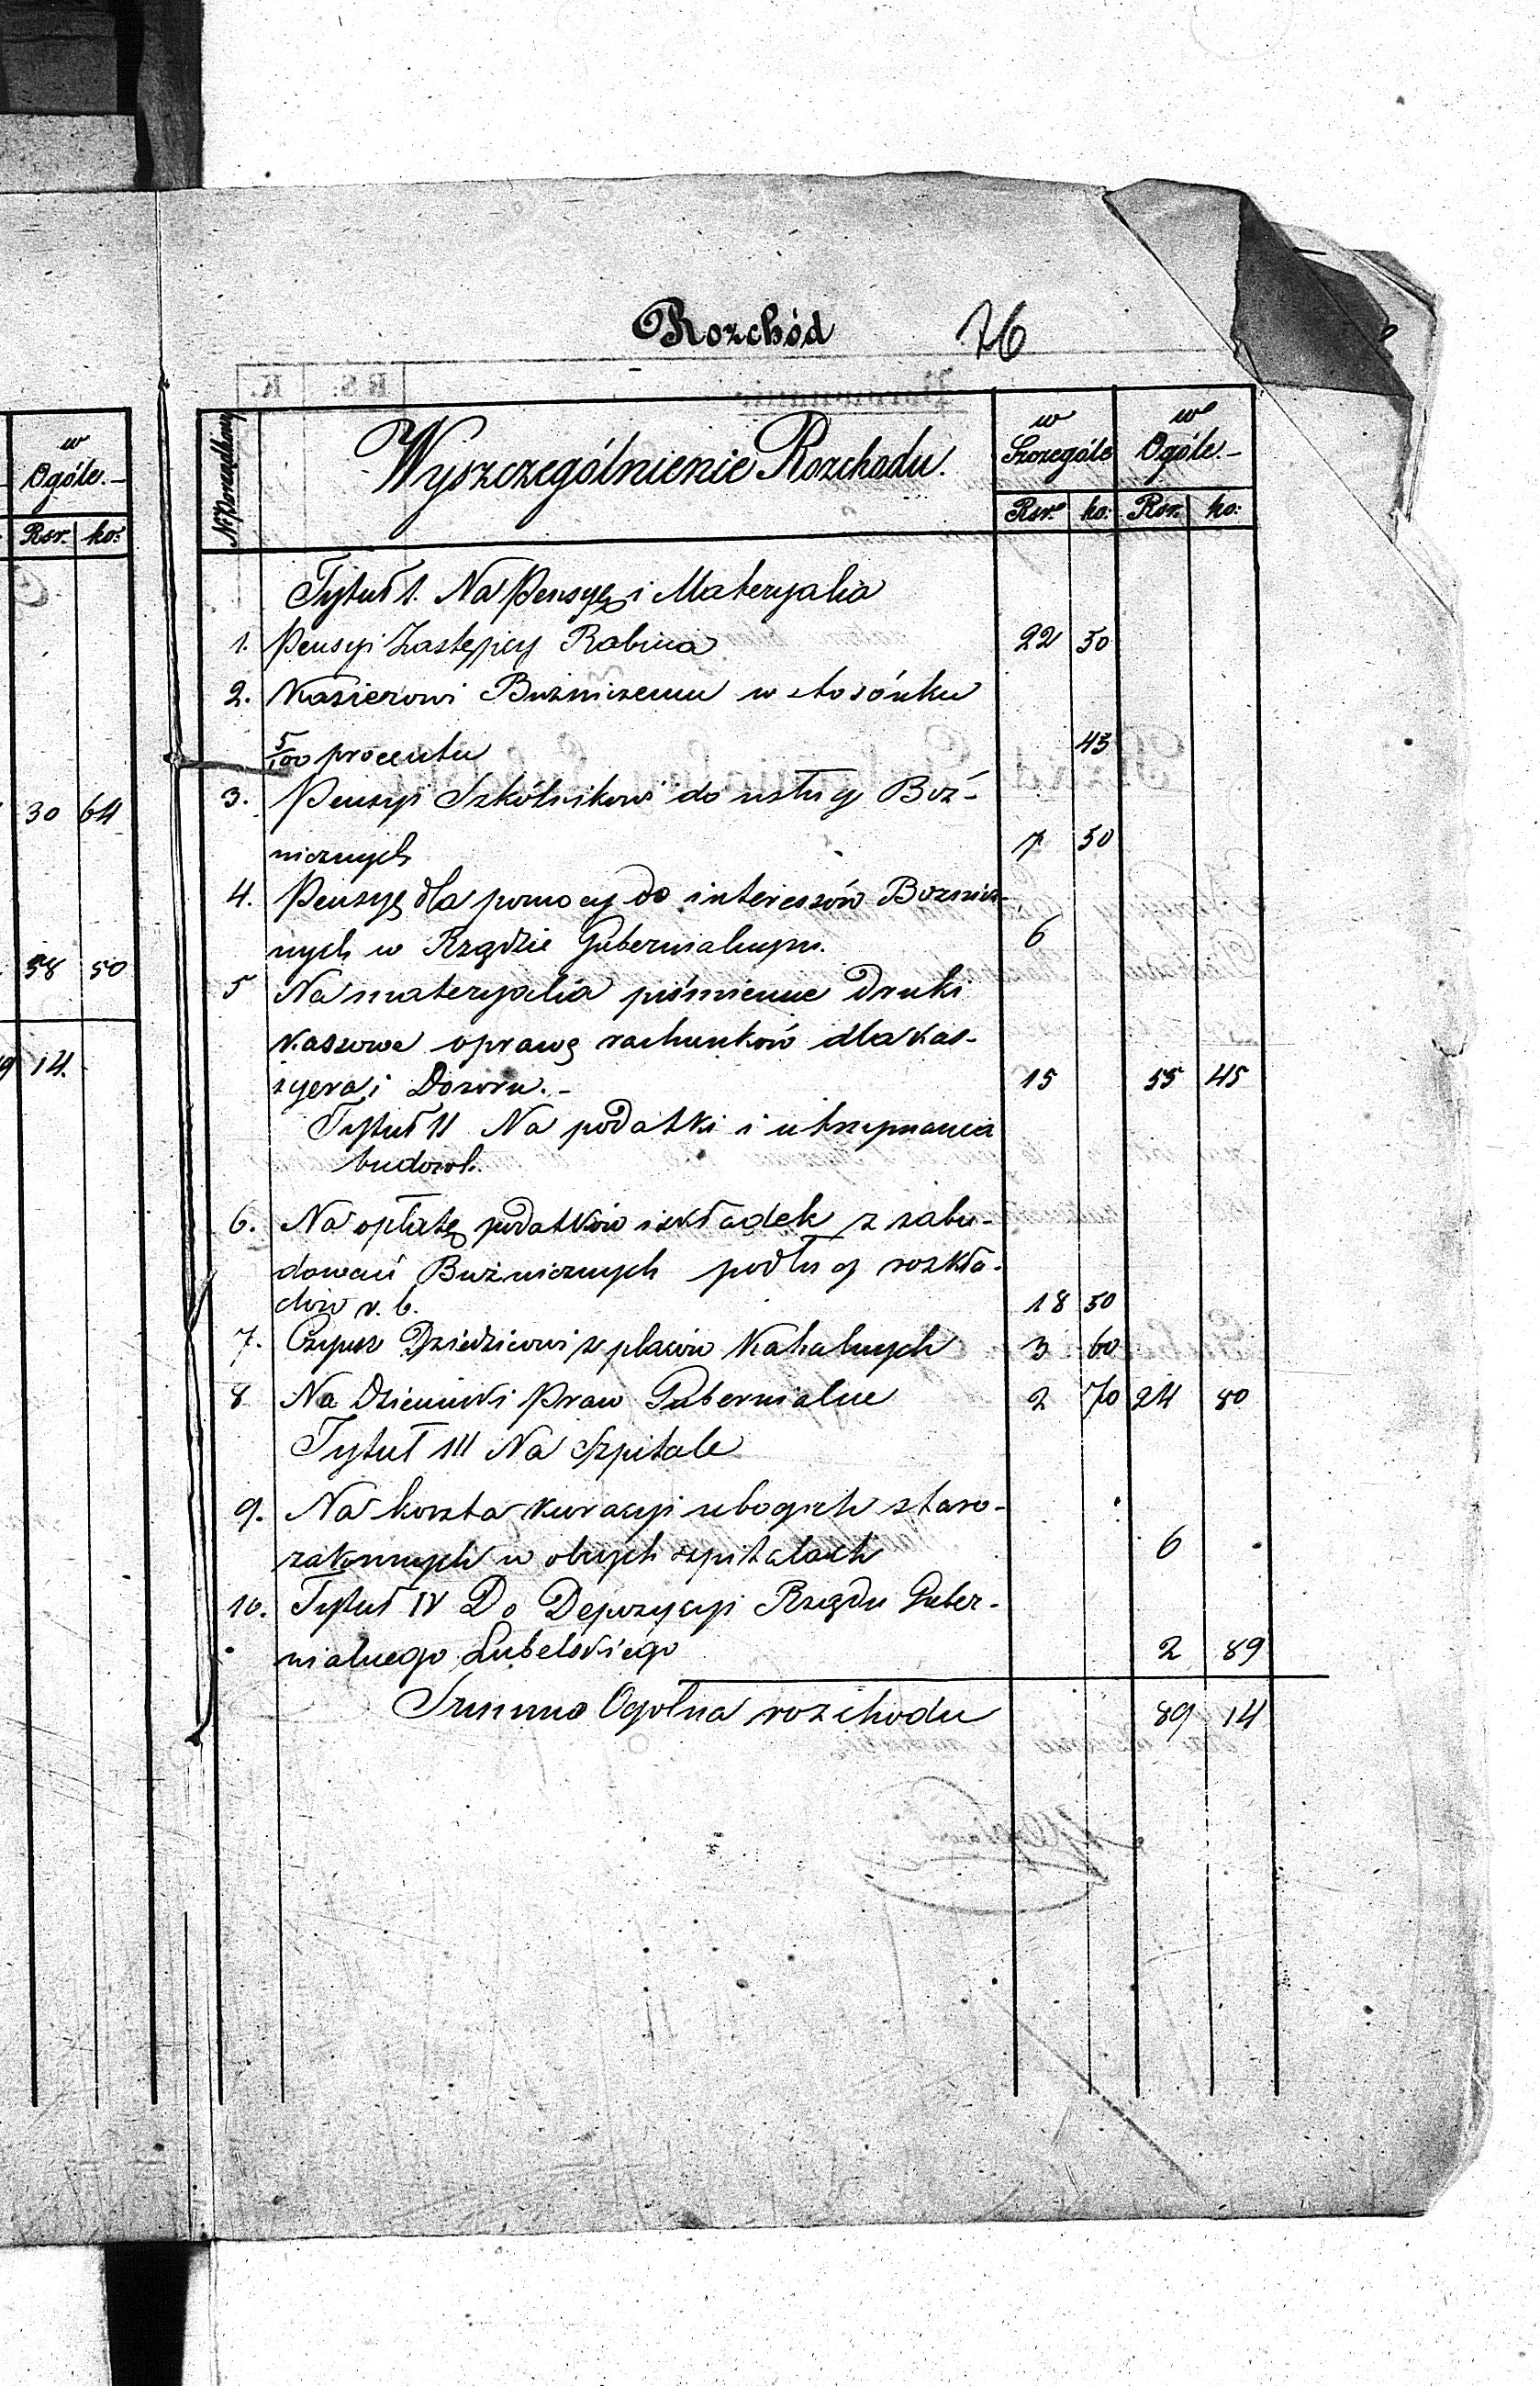 w
Ogóle.-
Rsr. ko:
30 64
58 50
14.
Rozchód 76
Nr Porządkowy
Wyszczególnienie Rozchodu.
w
Szczególe
w
Ogóle.-
Rsr. ko: Rsr. ko:
Tytuł I. Na Pensyę i Materyalia
1. Pensyi Zastępcy Rabina 22 50
2. Kasierowi Bużniczemu w stosónku
5/100 procentu 45
3. Pensyi Szkólnikowi do usług Boż-
nicznych 7 50
4. Pensyę dla pomocy do interessów Boznicz-
nych w Rządzie Gubernialnym. 6
5 Na materyalia piśmienne Druki
Kassowe oprawę rachunków dla Kas-
syera i Dozoru.- 15 55 45
Tytuł II Na podatki i utrzymania
budowl.
6. Na opłatę podatków i składek z zabu-
dowań Bużnicznych podług rozkła-
dów v. b. 18 50
7. Czynsz Dziedzicowi z placów Kahalnych 3 60
8 Na Dzienniki Praw Gubernialne 2 70 24 80
Tytuł III Na Szpitale
9. Na koszta kuracyi ubogich staro-
zakonnych w obcych szpitalach 6 .
10. Tytuł IV Do Depozycyi Rządu Guber-
nialnego Lubelskiego 2 89
Summa Ogolna rozchodu 89 14